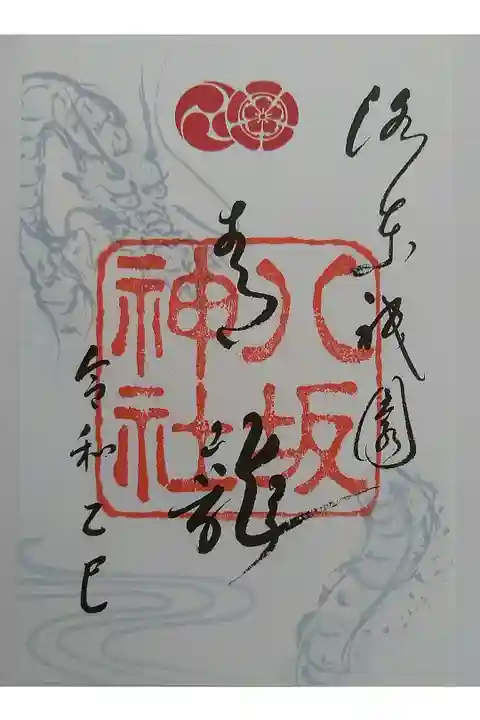 洛东祇園
青龍
八坂
神社
令和乙巳